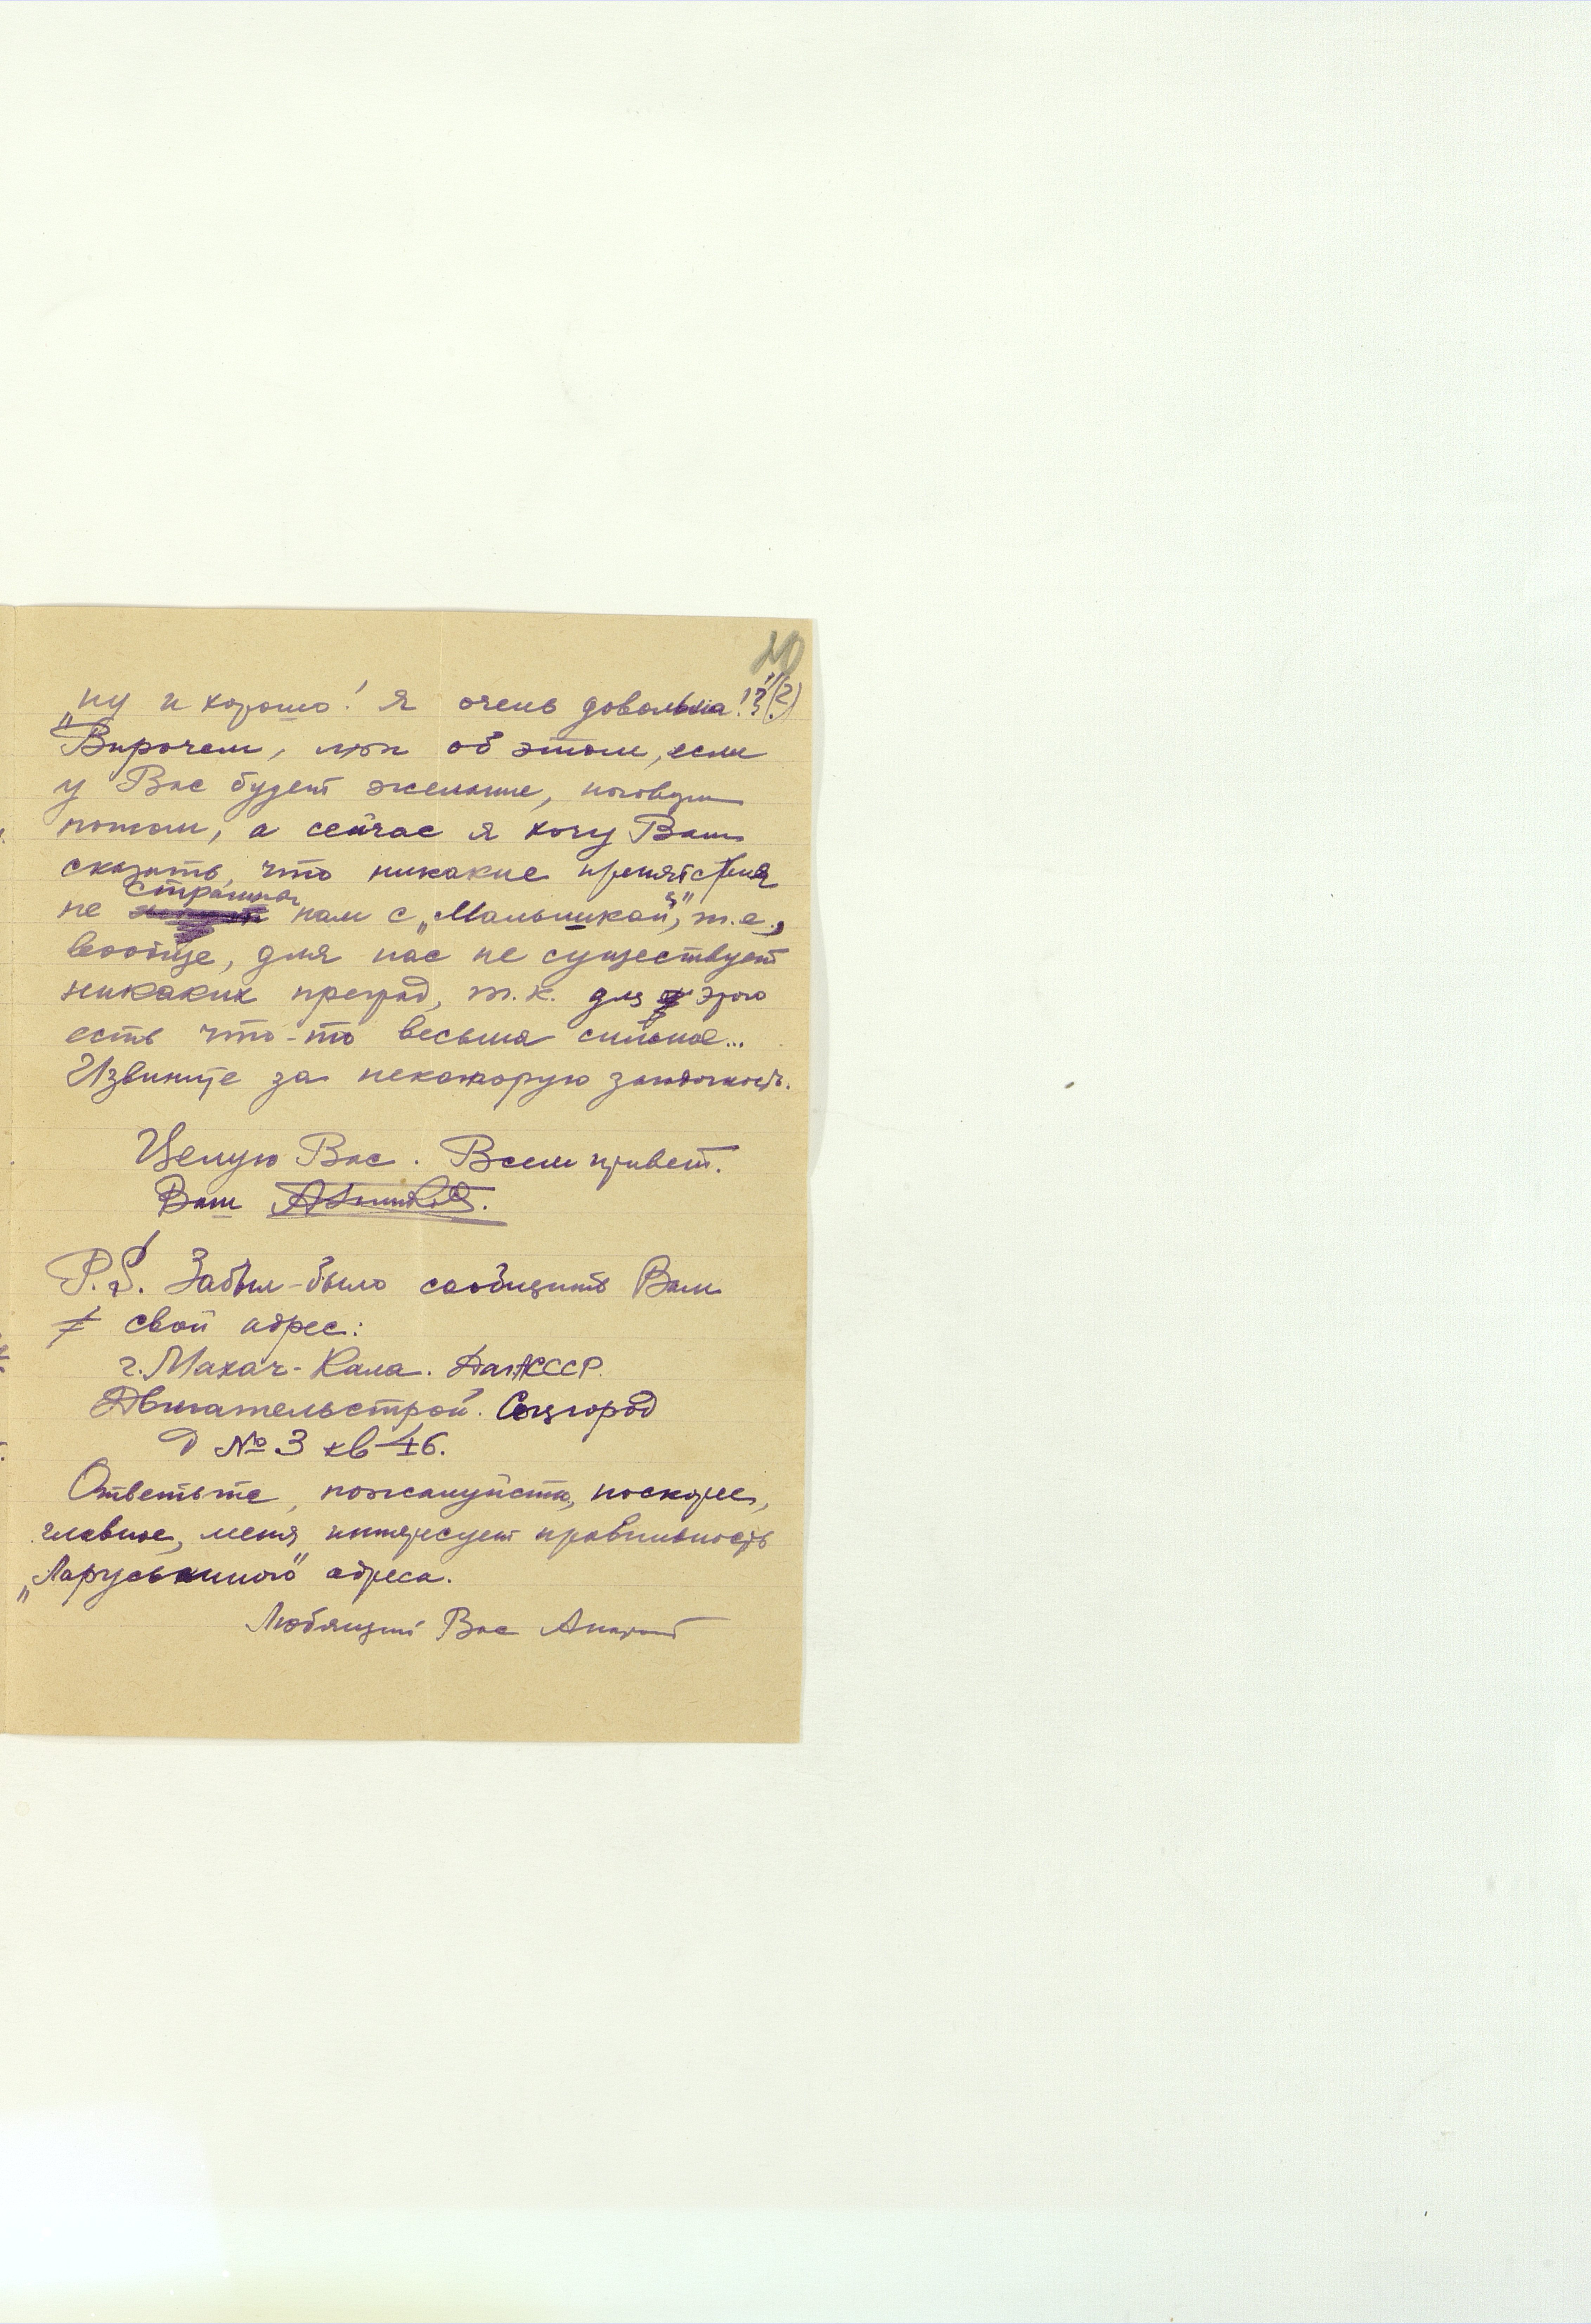 20
„ну и хорошо! Я очень довольна!?“(?)
Впрочем, мы об этом, если
у Вас будет желание, поговорим
потом, а сейчас я хочу Вам
сказать, что никакие препятствия
не страшны нам с „Малышкой“, т.е.,
вообще, для нас не существует
никаких преград, т.к. для этого
есть что-то весьма сильное...
Извините за некоторую загадочность.
Целую Вас. Всем привет.
Ваш
P.S. Забыл-было сообщить Вам
свой адрес:
г. Махач-Кала. ДагАССР.
Двигательстрой. Соцгород
д №3 кв 46.
Ответьте, пожалуйста, поскорее,
главное, меня интересует правильность
„Ларуськиного“ адреса.
Любящий Вас